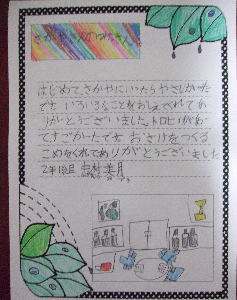 さかやさんのみなさん
はじめてさかやにいったらやさしかった
です いろいろなことをおしえてくれてあ
りがとうございました。トロヒィがあっ
てすごかったです おさけをつくる
こめをくれてありがとうございました
2年1組